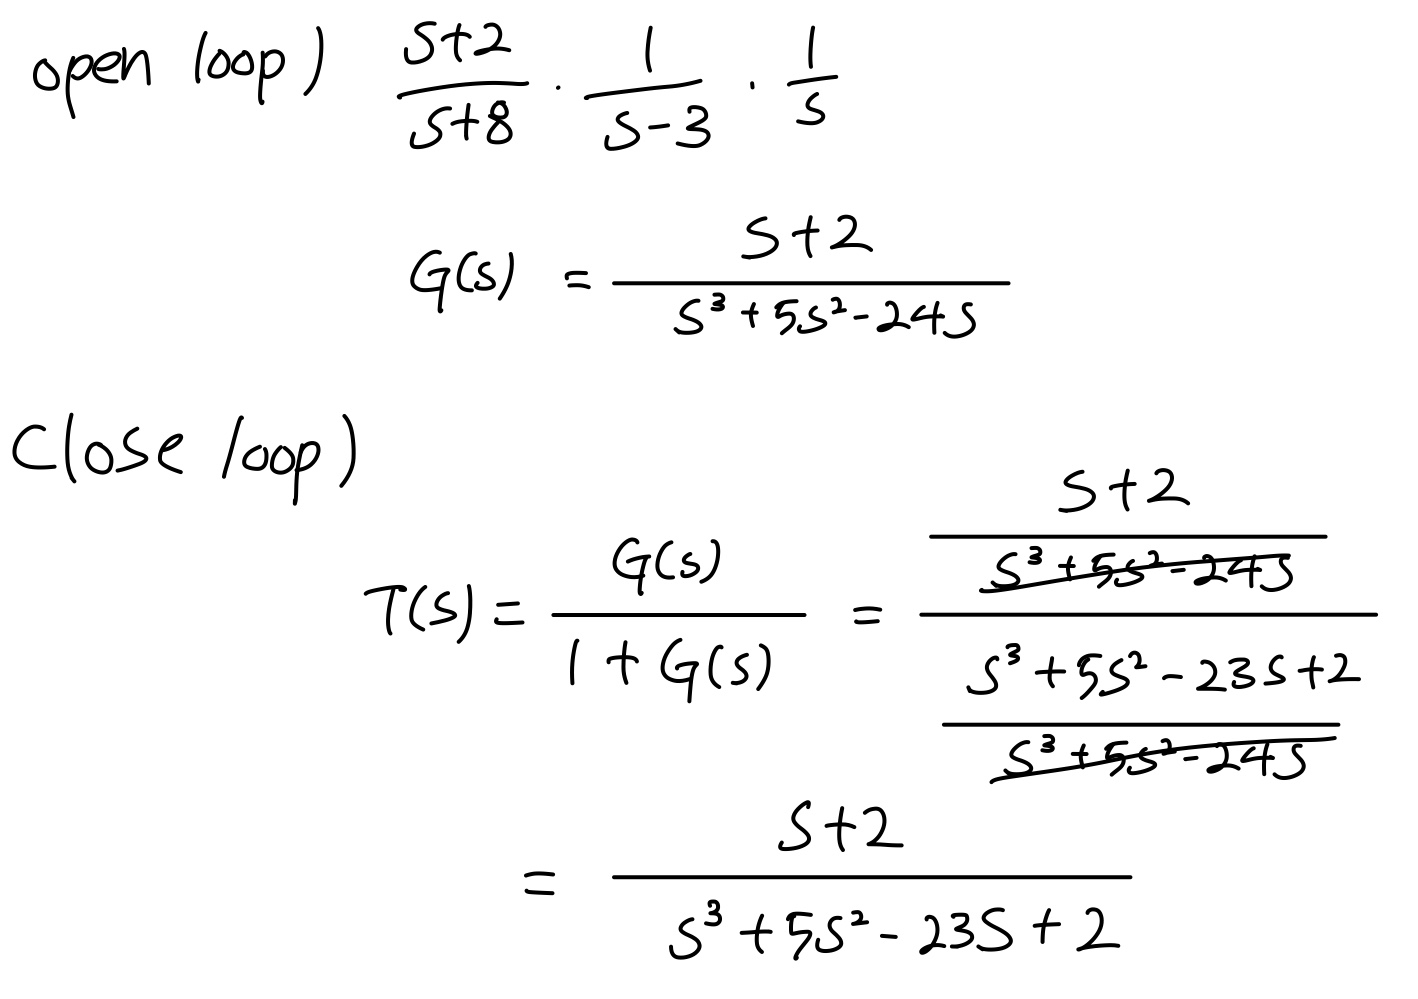 open loop) \frac{s+2}{s+8} \cdot \frac{1}{s-3} \cdot \frac{1}{s}
G(s) = \frac{s+2}{s^3+5s^2-24s}
Close loop)
T(s) = \frac{G(s)}{1+G(s)} = \frac{\frac{s+2}{s^3+5s^2-24s}}{\frac{s^3+5s^2-23s+2}{s^3+5s^2-24s}}
= \frac{s+2}{s^3+5s^2-23s+2}